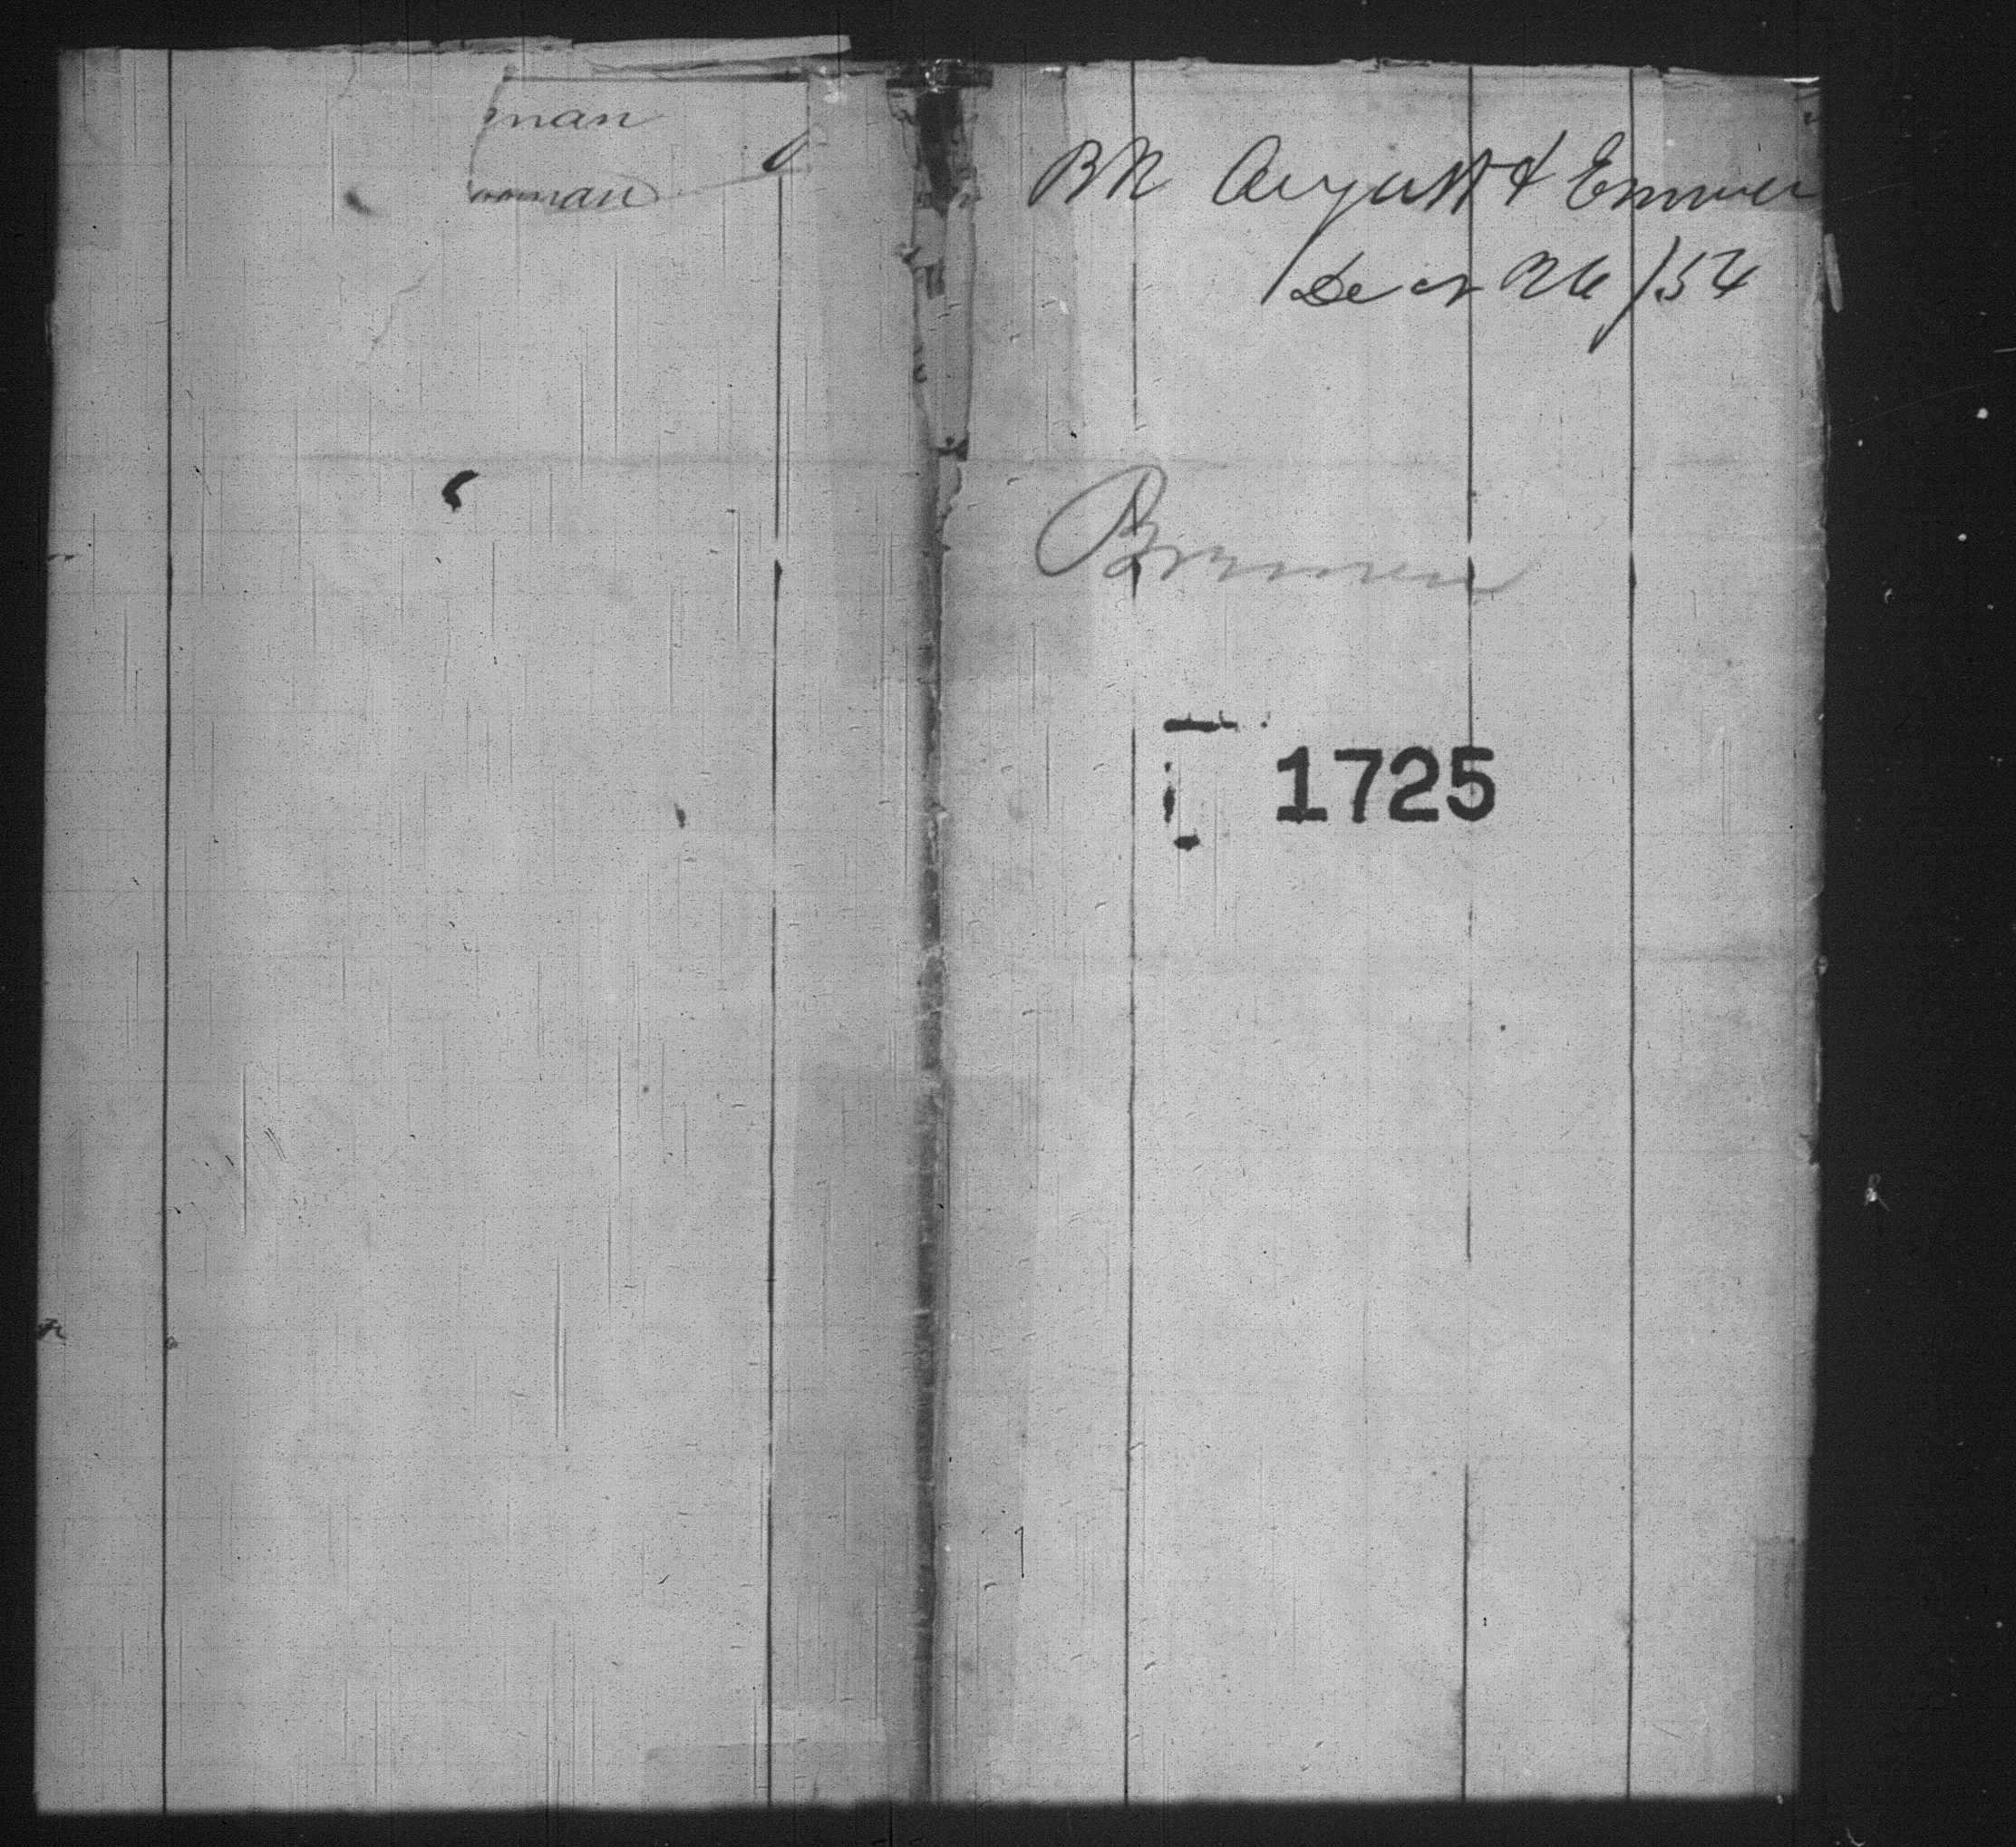 man
man
Bk August & Emma
Dec 26/54
Bremen
1725